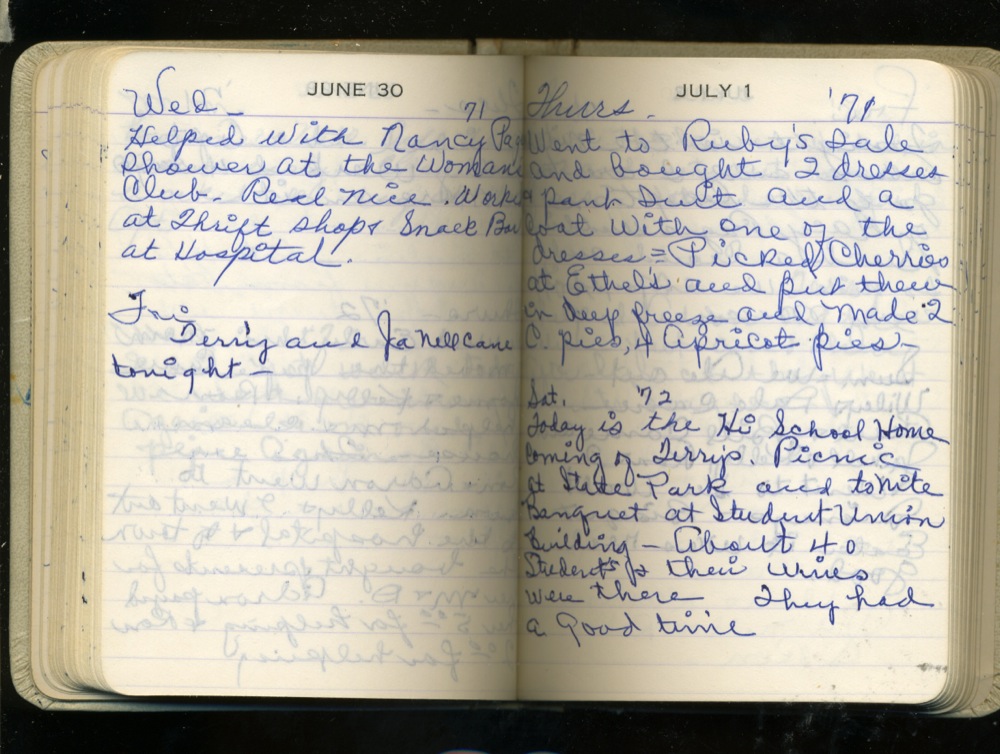 JUNE 30
Wed - 71
Helped with Nancy Pa
Shower at the Womans
Club - Real nice. Worked
at Thrift shop & Snack Bar
at Hospital.
Fri
Terry and Janell came
tonight -
JULY 1
Thurs. '71
Went to Ruby's Sale
and bought 2 dresses
a pant suit and a
Coat with one of the
dresses = Picked Cherries
at Ethel's and put them
in deep freeze and made 2
C. pies, 4 Apricot pies -
Sat. '72
Today is the Hi School Home
coming of Terrys. Picnic
at State Park and tonite
Banquet at Student Union
Building - About 40
Students & their wives
were there They had
a good time